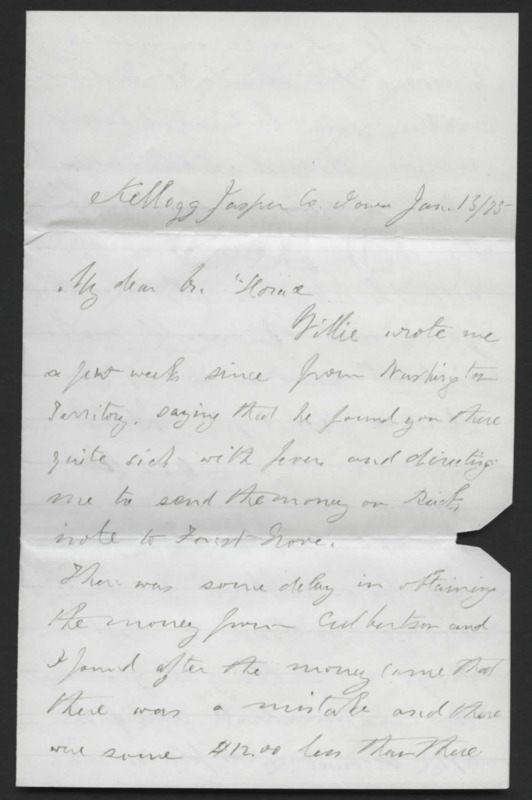 Kellogg Jasper Co Iowa Jan. 13/75
My dear Br. Horace
Willie wrote me
a few weeks since from Washington
Territory, saying that he found you there
quite sick with fever and directing
me to send the money on
note to Forest Grove.
There was some delay in obtaining
the money from Culbertson and
I found after the money came that
there was a mistake and there
were some $12.00 less than there